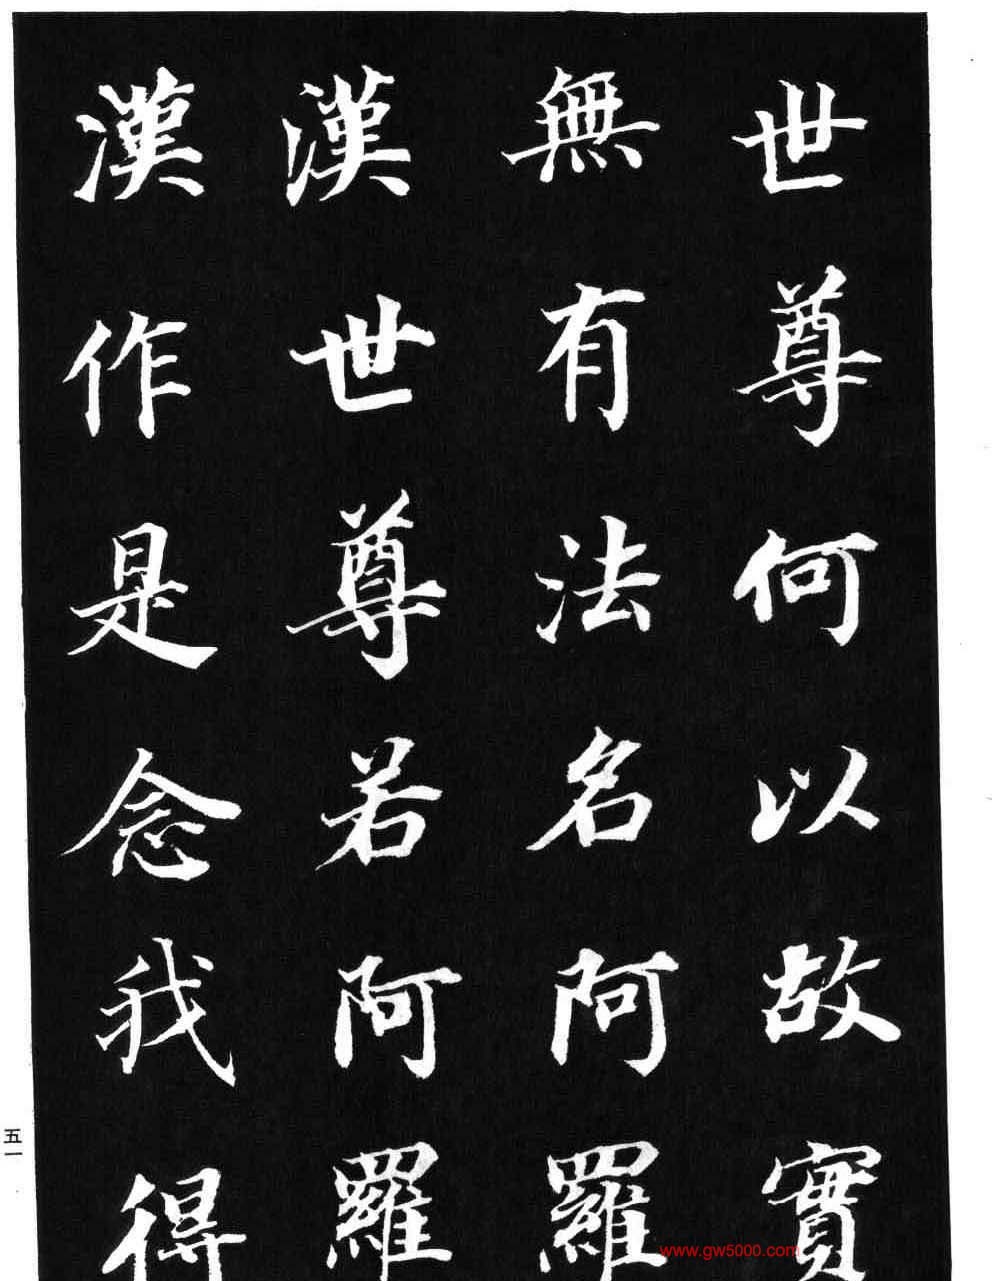 世尊何以故實
無有法名阿羅
漢世尊若阿羅
漢作是念我得
五一
www.gw5000.com